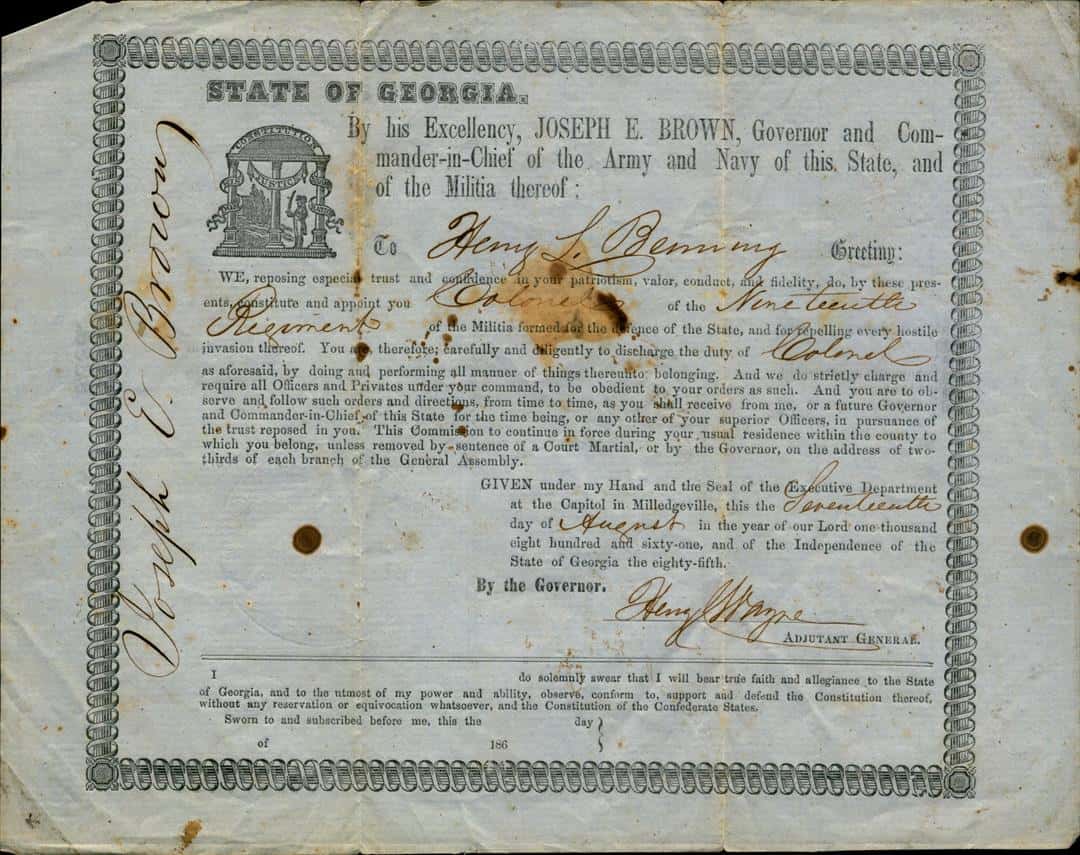 STATE OF GEORGIA.
By his Excellency, JOSEPH E. BROWN, Governor and Com-
mander-in-Chief of the Army and Navy of this State, and
of the Militia thereof:
CONSTITUTION
JUSTICE
To Henry L. Benning Greeting:
WE, reposing especial trust and confidence in your patriotism, valor, conduct, and fidelity, do, by these pres-
ents, constitute and appoint you Colonel of the Nineteenth
Regiment of the Militia formed for the defence of the State, and for repelling every hostile
invasion thereof. You are, therefore, carefully and diligently to discharge the duty of Colonel
as aforesaid, by doing and performing all manner of things thereunto belonging. And we do strictly charge and
require all Officers and Privates under your command, to be obedient to your orders as such. And you are to ob-
serve and follow such orders and directions, from time to time, as you shall receive from me, or a future Governor
and Commander-in-Chief of this State for the time being, or any other of your superior Officers, in pursuance of
the trust reposed in you. This Commission to continue in force during your usual residence within the county to
which you belong, unless removed by sentence of a Court Martial, or by the Governor, on the address of two-
thirds of each branch of the General Assembly.
GIVEN under my Hand and the Seal of the Executive Department
at the Capitol in Milledgeville, this the Seventeenth
day of August in the year of our Lord one thousand
eight hundred and sixty-one, and of the Independence of the
State of Georgia the eighty-fifth.
By the Governor.
Henry C Wayne
ADJUTANT GENERAL.
Joseph E. Brown
I do solemnly swear that I will bear true faith and allegiance to the State
of Georgia, and to the utmost of my power and ability, observe, conform to, support and defend the Constitution thereof,
without any reservation or equivocation whatsoever, and the Constitution of the Confederate States.
Sworn to and subscribed before me, this the day
of 186